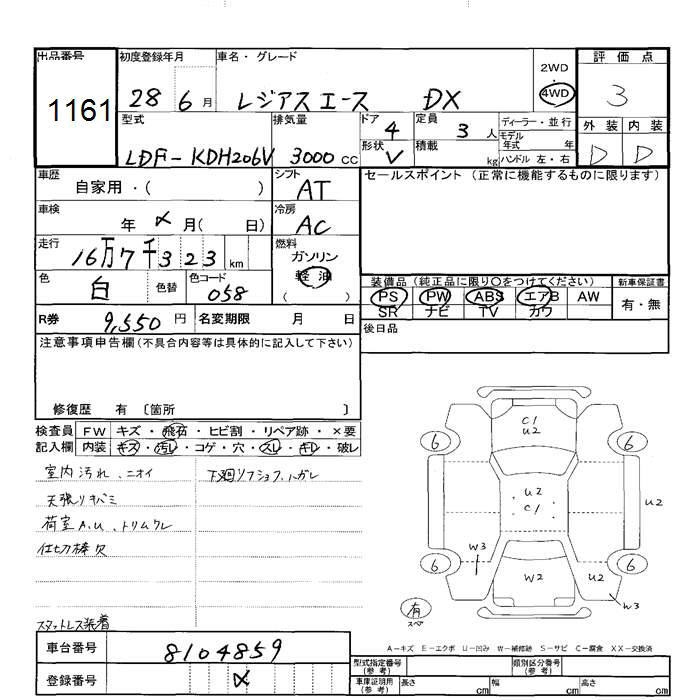 出品番号 初度登録年月 車名・グレード 2WD・4WD 評価点
1161 28 6月 レジアスエース DX 3
型式 排気量 ドア 4 定員 3人 ディーラー・並行 外装 内装
LDF-KDH206V 3000cc 形状 V 積載 kg モデル年式 年 ハンドル 左・右 D D
車歴 シフト セールスポイント (正常に機能するものに限ります)
自家用・( ) AT
車検 年 メ 月( 日) 冷房 AC
走行 16万7千323 km 燃料 ガソリン 軽油 ( )
色 白 色替 色コード 058 装備品 (純正品に限り○をつけてください) 新車保証書
PS PW ABS エアB AW 有・無
SR ナビ TV カワ
R券 9,550円 名変期限 月 日 後日品
注意事項申告欄(不具合内容等は具体的に記入して下さい)
修復歴 有 〔箇所 〕
検査員 FW キズ・飛石・ヒビ割・リペア跡・×要
記入欄 内装 キズ・汚レ・コゲ・穴・スレ・キレ・破レ
室内汚れ、ニオイ 下廻リフショフ、ハガレ
天張りキバミ
荷室A.U、トリムワレ
仕切棒欠
スタットレス装着
C1
U2
6 6
U2
C1
U2
W3
6 6
W2 U2
W3
有
スペ
A-キズ E-エクボ U-凹み W-補修跡 S-サビ C-腐食 XX-交換済
車台番号 8104859 型式指定番号(参考) 類別区分番号(参考)
登録番号 メ 車庫証明用(参考) 長さ cm 幅 cm 高さ cm